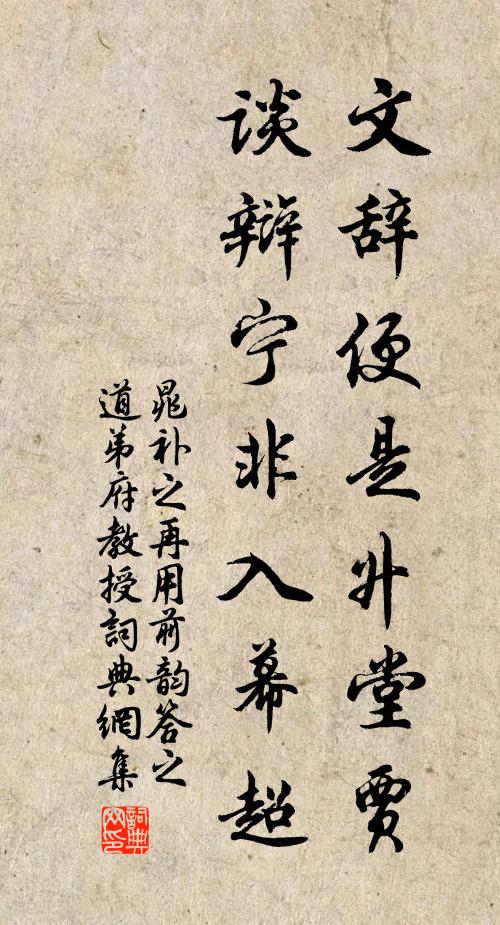 文辞便是升堂贾
谈辩宁非入幕超
晁补之再用前韵答之
道弟府教授詞典網集
詞典网印